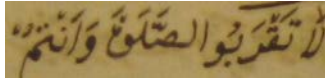 لَا تَقْرَبُوا الصَّلَوٰةَ وَاَنْتُمْ